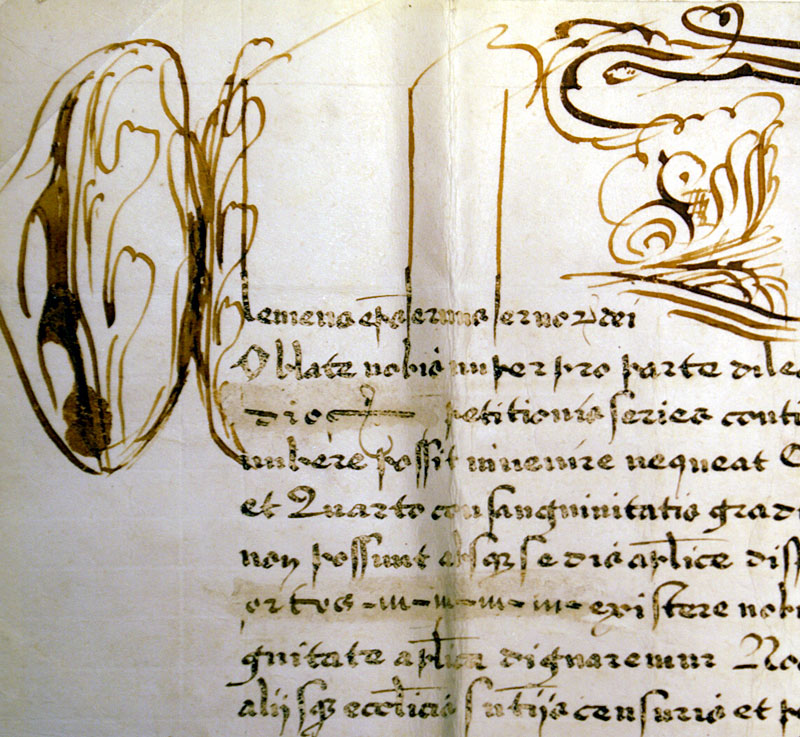 Clemens ep̄s servus servoꝝ dei
Oblate nobis nuper pro parte dilec
dioc petitionis series conti
nubere possit invenire nequeat
et Quarto consanguinitatis gradi
non possunt absqꝫ sedis ap̄lice disp
ortos existere nobi
gnitate ap̄lica dignaremur Nos
alijsqꝫ eccl̄icis sn̄tijs censuris et p